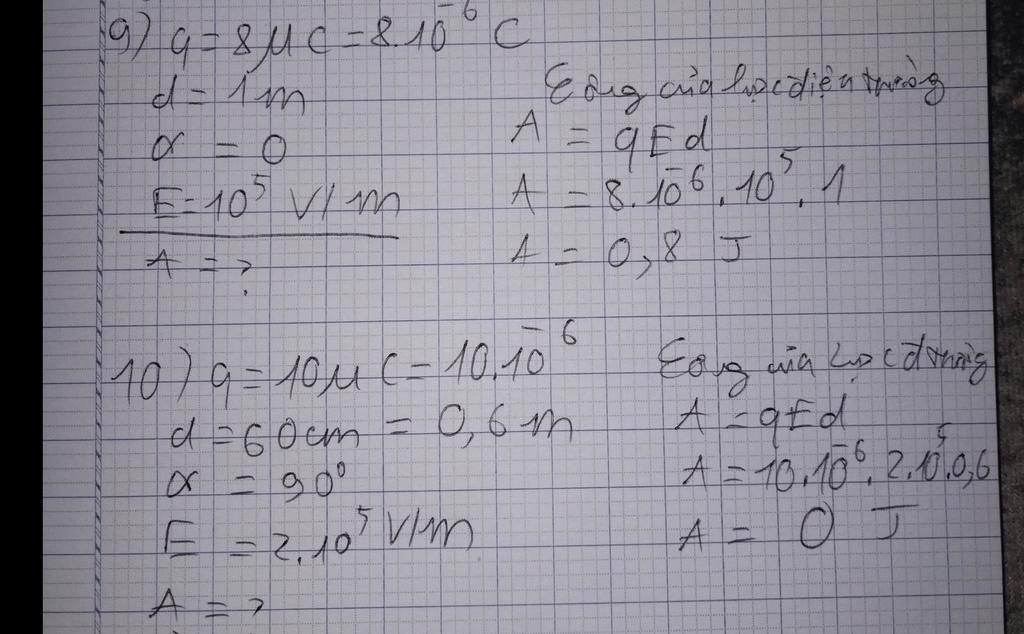 9) q = 8 μC = 8.10⁻⁶ C
d = 1m
α = 0
E = 10⁵ V/m
A = ?
Công của lực điện trường
A = qEd
A = 8.10⁻⁶.10⁵.1
A = 0,8 J
10) q = 10μC = 10.10⁻⁶
d = 60cm = 0,6 m
α = 90⁰
E = 2.10⁵ V/m
A = ?
Công của lực đ trường
A = qEd
A = 10.10⁻⁶.2.10⁵.0,6
A = 0 J